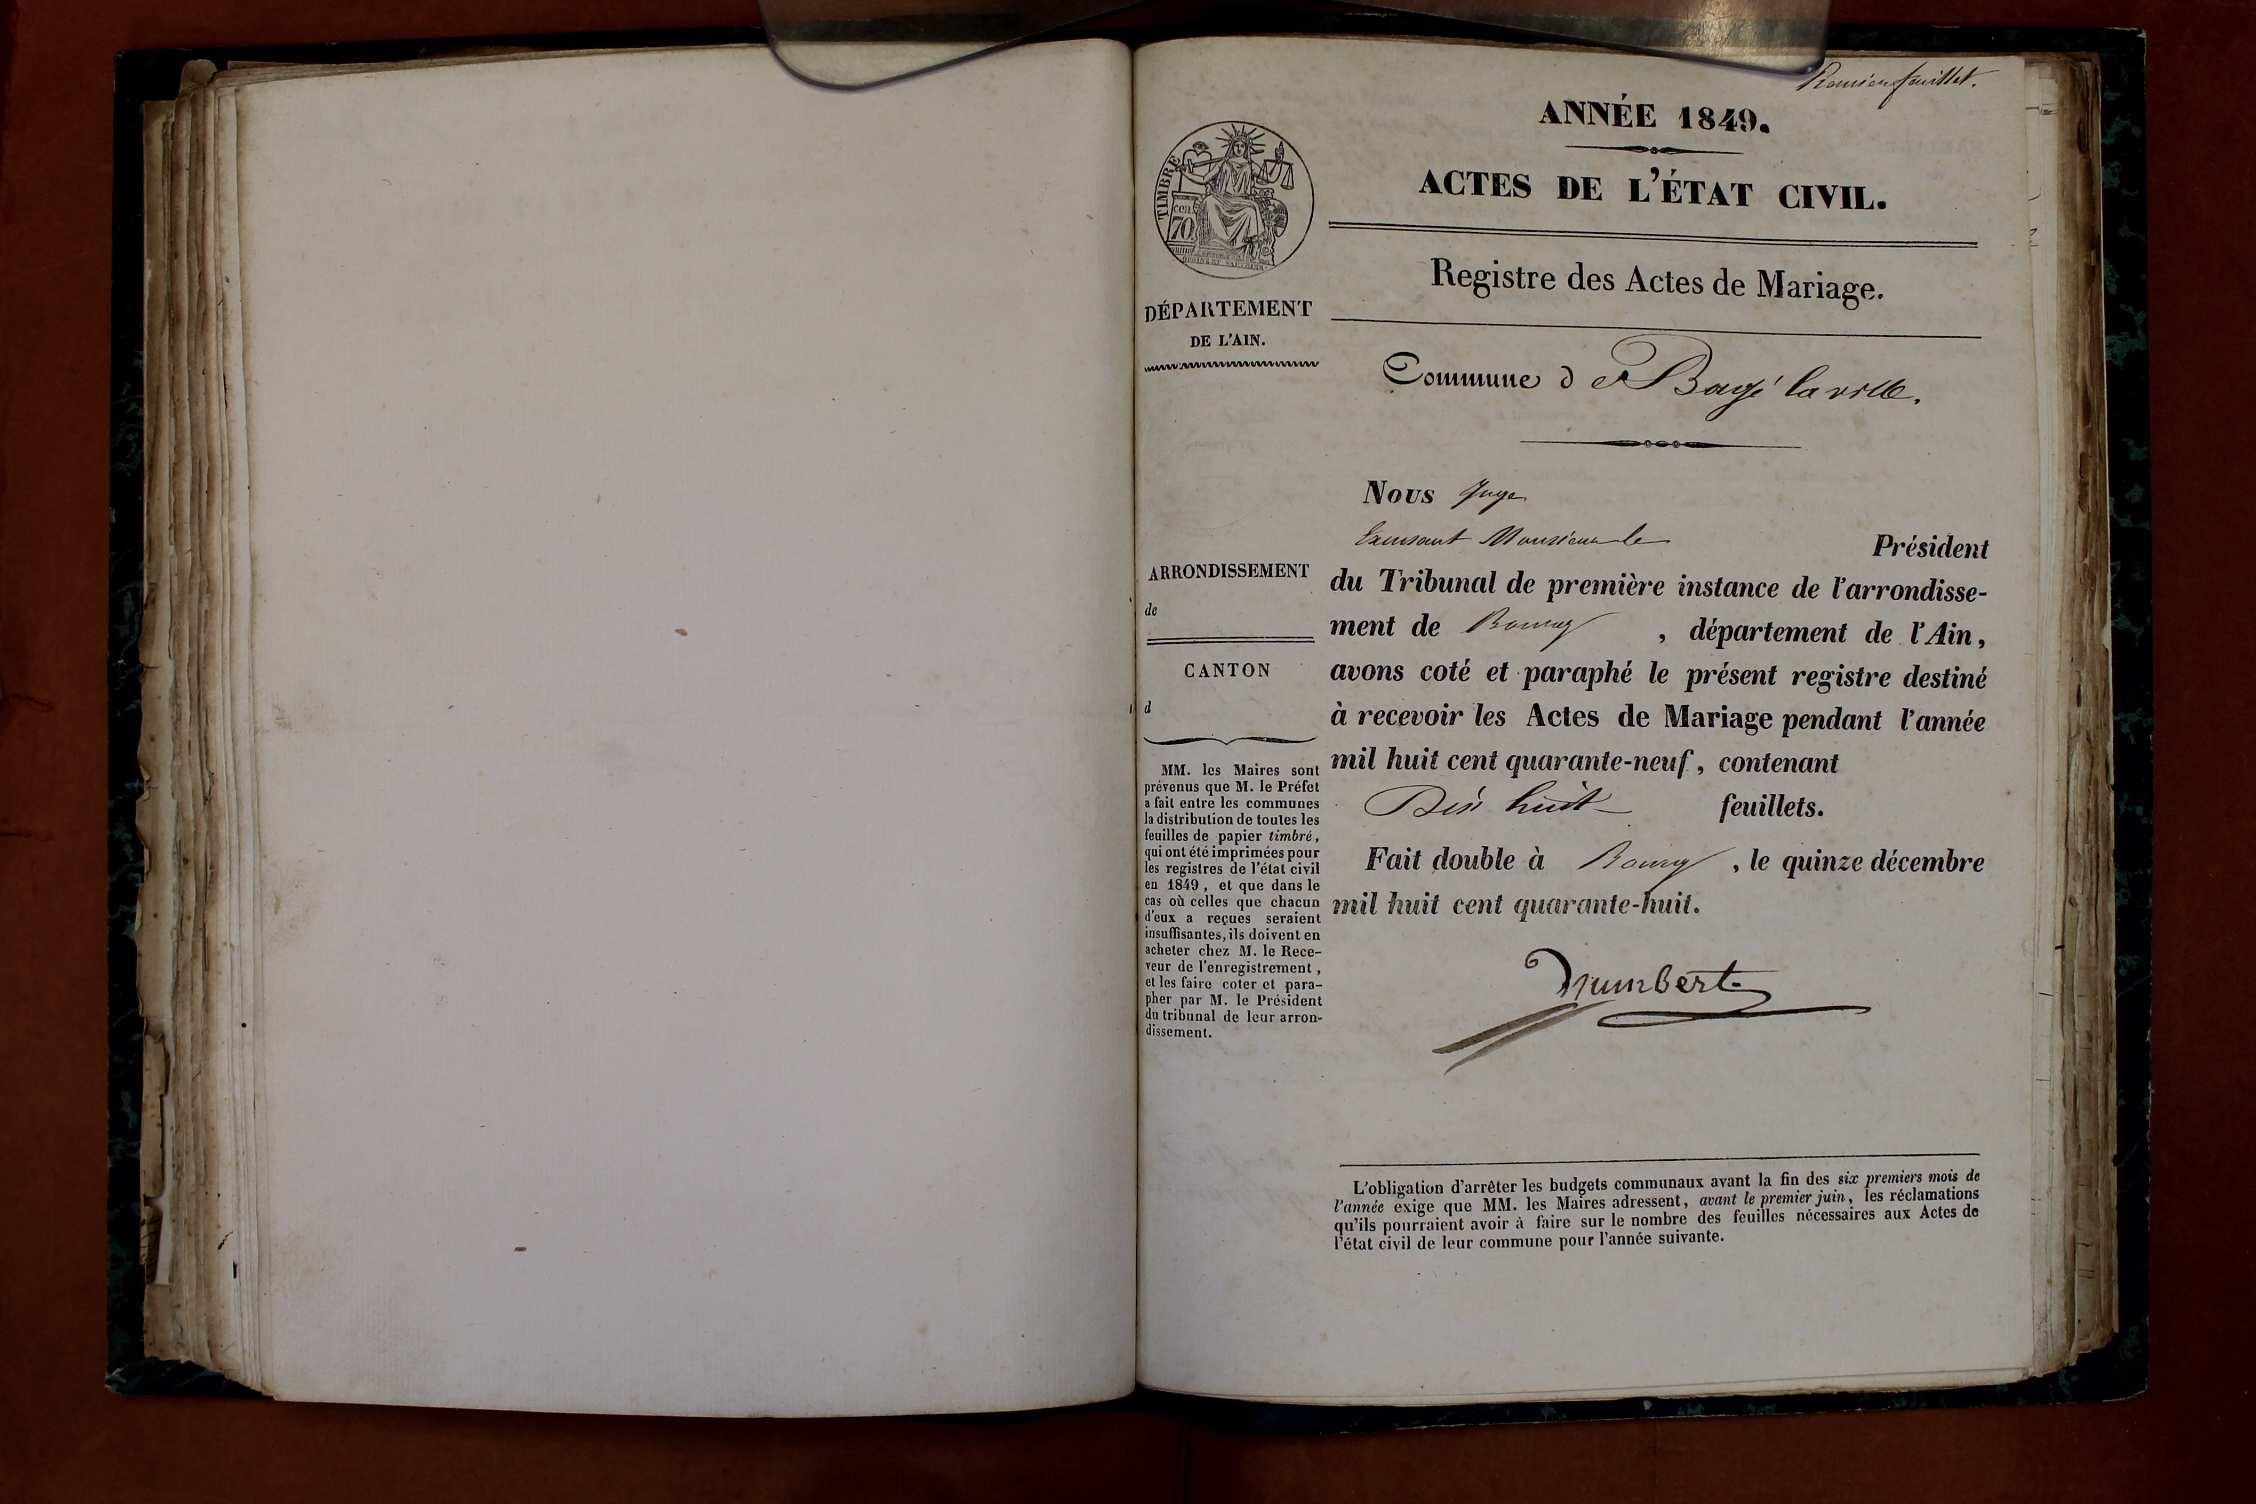 Premier feuillet.
ANNÉE 1849.
ACTES DE L'ÉTAT CIVIL.
Registre des Actes de Mariage.
Commune de Bagé la ville.
TIMBRE
cen.
70
DÉPARTEMENT
DE L'AIN.
ARRONDISSEMENT
de
CANTON
d
MM. les Maires sont
prévenus que M. le Préfet
a fait entre les communes
la distribution de toutes les
feuilles de papier timbré,
qui ont été imprimées pour
les registres de l'état civil
en 1849, et que dans le
cas où celles que chacun
d'eux a reçues seraient
insuffisantes, ils doivent en
acheter chez M. le Rece-
veur de l'enregistrement,
et les faire coter et para-
pher par M. le Président
du tribunal de leur arron-
dissement.
Nous Juge
Monsieur le Président
du Tribunal de première instance de l'arrondisse-
ment de Bourg, département de l'Ain,
avons coté et paraphé le présent registre destiné
à recevoir les Actes de Mariage pendant l'année
mil huit cent quarante-neuf, contenant
Dix huit feuillets.
Fait double à Bourg, le quinze décembre
mil huit cent quarante-huit.
L'obligation d'arrêter les budgets communaux avant la fin des six premiers mois de
l'année exige que MM. les Maires adressent, avant le premier juin, les réclamations
qu'ils pourraient avoir à faire sur le nombre des feuilles nécessaires aux Actes de
l'état civil de leur commune pour l'année suivante.